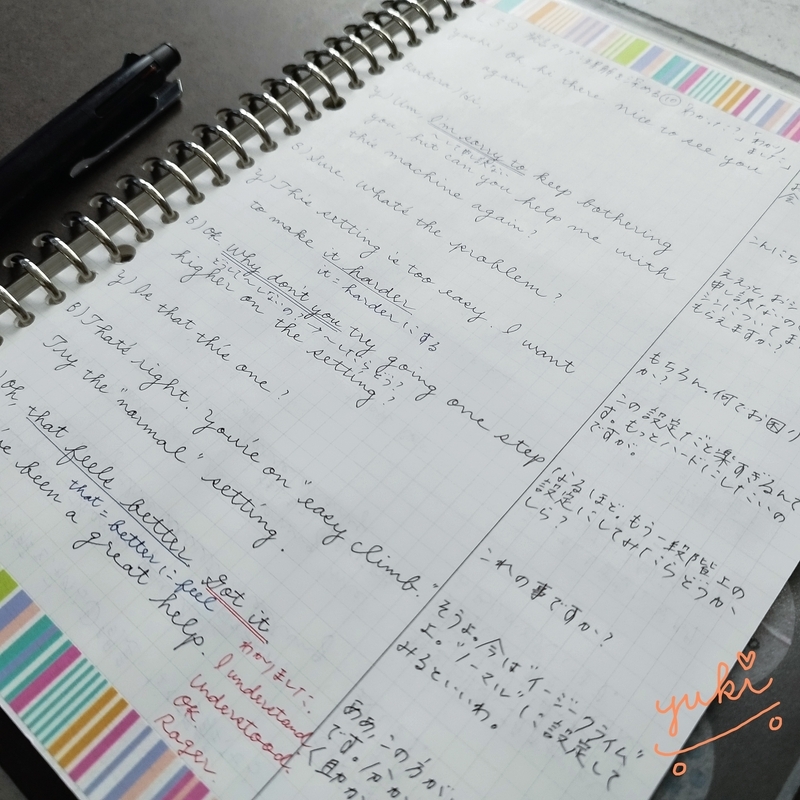 you) Oh hi there nice to see you
again.
Barbara / Hi.
y) Um I'm sorry to keep bothering
you, but can you help me with
this machine again?
B) Sure what's the problem?
y) This setting is too easy. I want
to make it harder
it = harder にする
B) Ok why don't you try going one step
どうしてしないの?→〜してみたらどう?
higher on the setting?
y) Is that this one?
B) That's right. You're on "easy climb."
Try the "normal" setting.
Oh, that feels better got it
that = better に feel
've been a great help.
わかりました。
I understand
Understood.
OK
Roger
もちろん。何でお困り
か?
この設定だと楽すぎるんで
す。もっとハードにしたいの
ですが。
なるほど。もう一段階上の
設定にしてみたらどうか
しら?
これの事ですか?
そうよ。今は"イージークライム"
よ。"ノーマル"に設定して
みるといいわ。
ああ、この方が、
です。
く助か
yuki